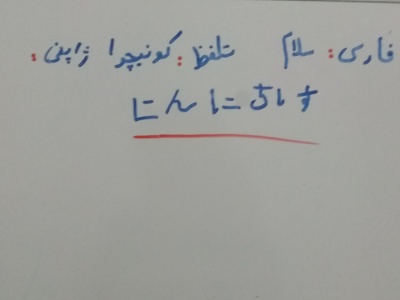 فارسی: سلام تلفظ: کونیچوا ژاپنی:
こんにちは